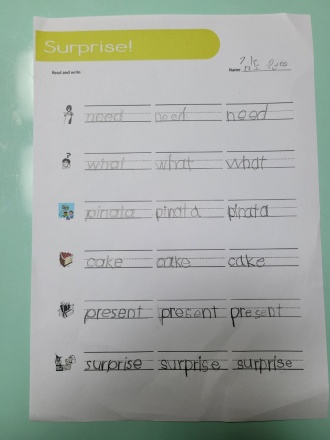 Surprise!
Read and write. Name
need need need
what what what
pinata pinata pinata
cake cake cake
present present present
surprise surprise surprise